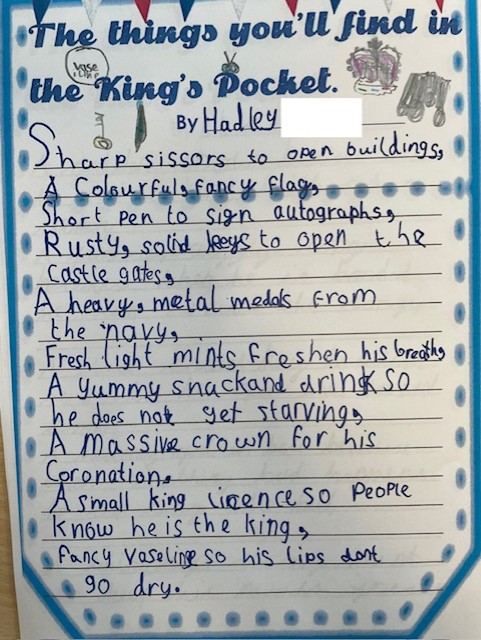 The things you'll find in
vaseline
the King's Pocket.
By Hadley
Sharp sissors to open buildings,
A Colourful, fancy flag,
Short pen to sign autographs,
Rusty, solid keys to open the
castle gates,
A heavy, metal medals from
the navy,
Fresh light mints freshen his breath,
A yummy snackand drink so
he does not get starving,
A massive crown for his
Coronation.
A small king licence so people
know he is the king,
fancy vaseline so his lips dont
go dry.